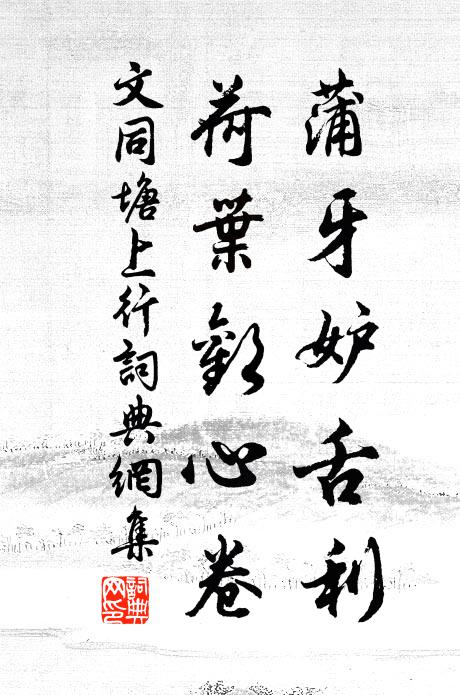 蒲牙妒舌利
荷葉歡心卷
文同塘上行詞典網集
詞典网印